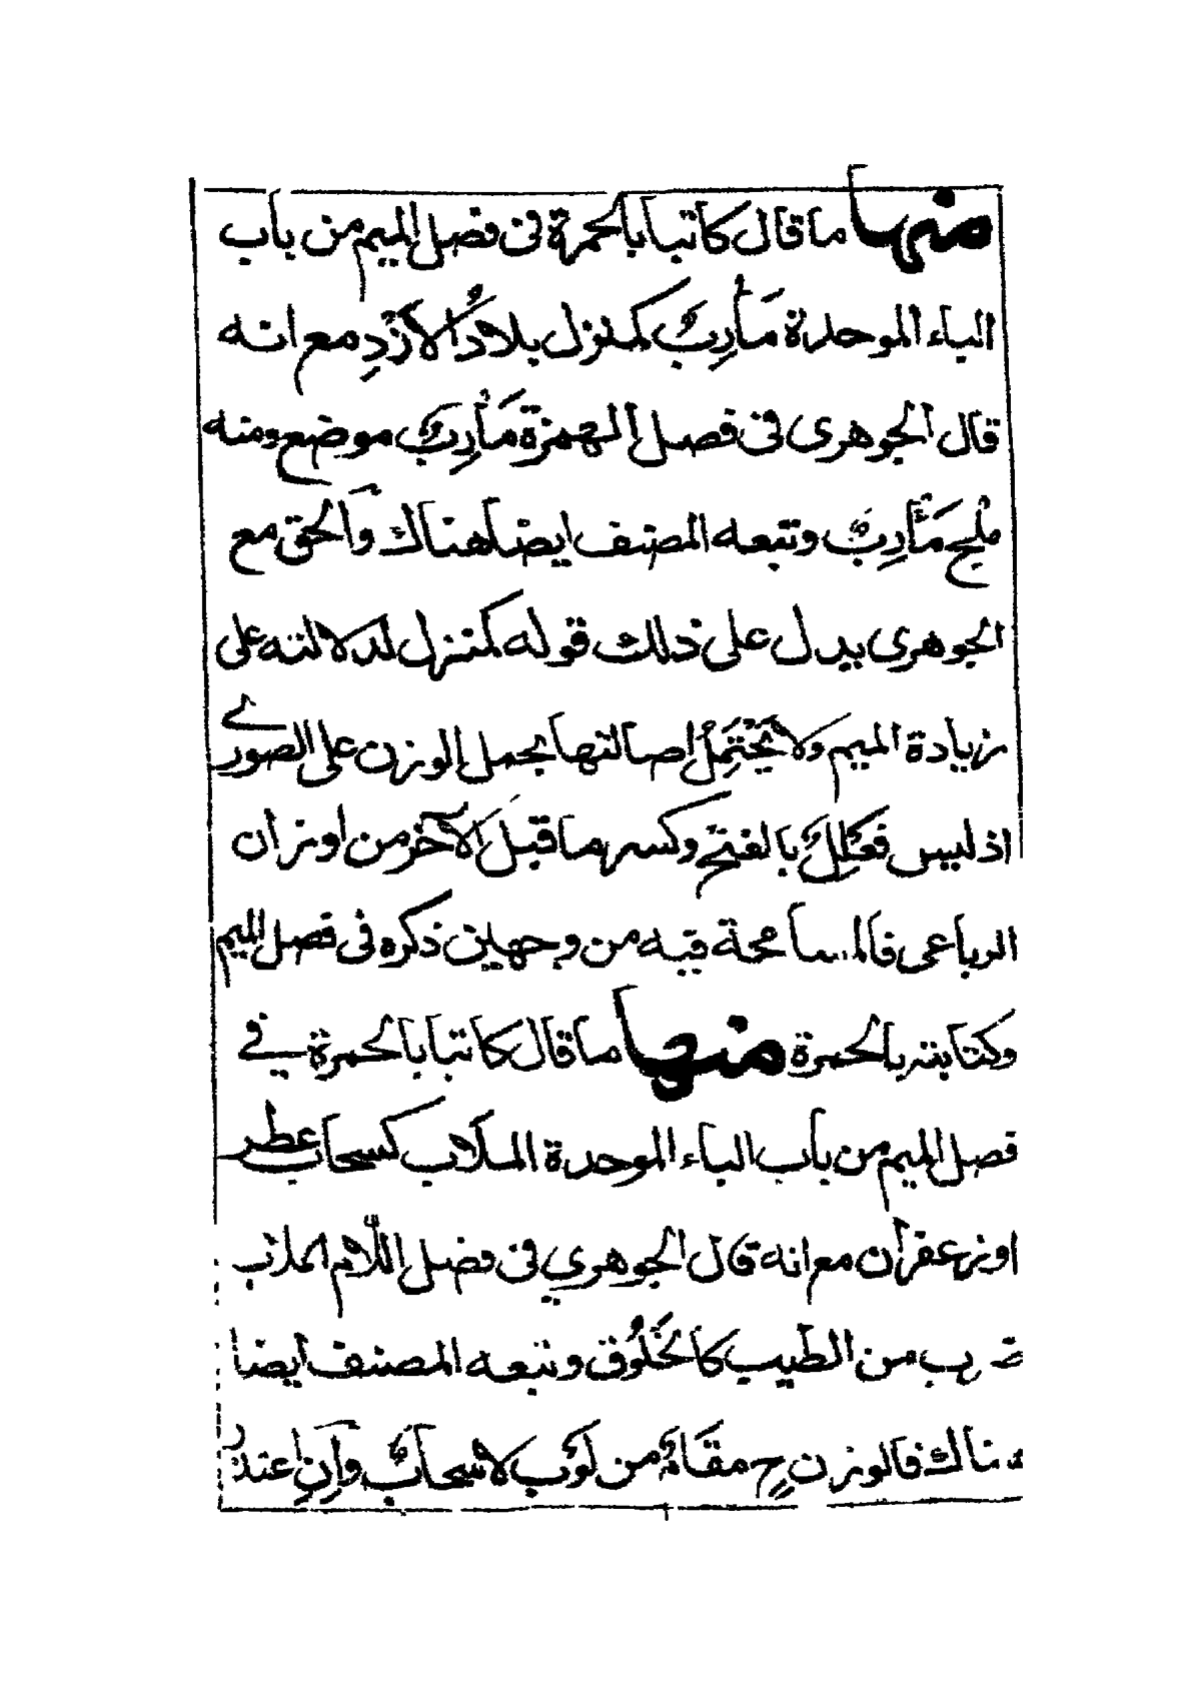 منها ما قال كاتبا بالحمرة في فصل الميم من باب
الباء الموحدة مَأْرِبٌ كمنزل بلادُ الأَزْدِ مع انه
قال الجوهرى في فصل الهمزة مَأْرِبٌ موضع ومنه
مِلْح مَأْرِبَ وتبعه المصنف ايضا هناك وَالحق مع
الجوهرى يدل على ذلك قوله كمنزل لدلالته على
زيادة الميم ولا يَحْتَمِلُ اصالتها بحمل الوزن على الصورى
اذ ليس فَعْلِلٌ بالفتح وكسر ما قبل الآخر من اوزان
الرباعى فالمسامحة فيه من وجهين ذكره في فصل الميم
وكتابته بالحمرة منها ما قال كاتبا بالحمرة في
فصل الميم من باب الباء الموحدة الملاب كسحاب عطر
او زعفران مع انه قال الجوهري في فصل اللّام الملاب
ضرب من الطيب كالخَلُوق وتبعه المصنف ايضا
هناك فالوزن ح مَفَالٌ من لَوْب لا سحابٌ وَإِنِ اعتذر